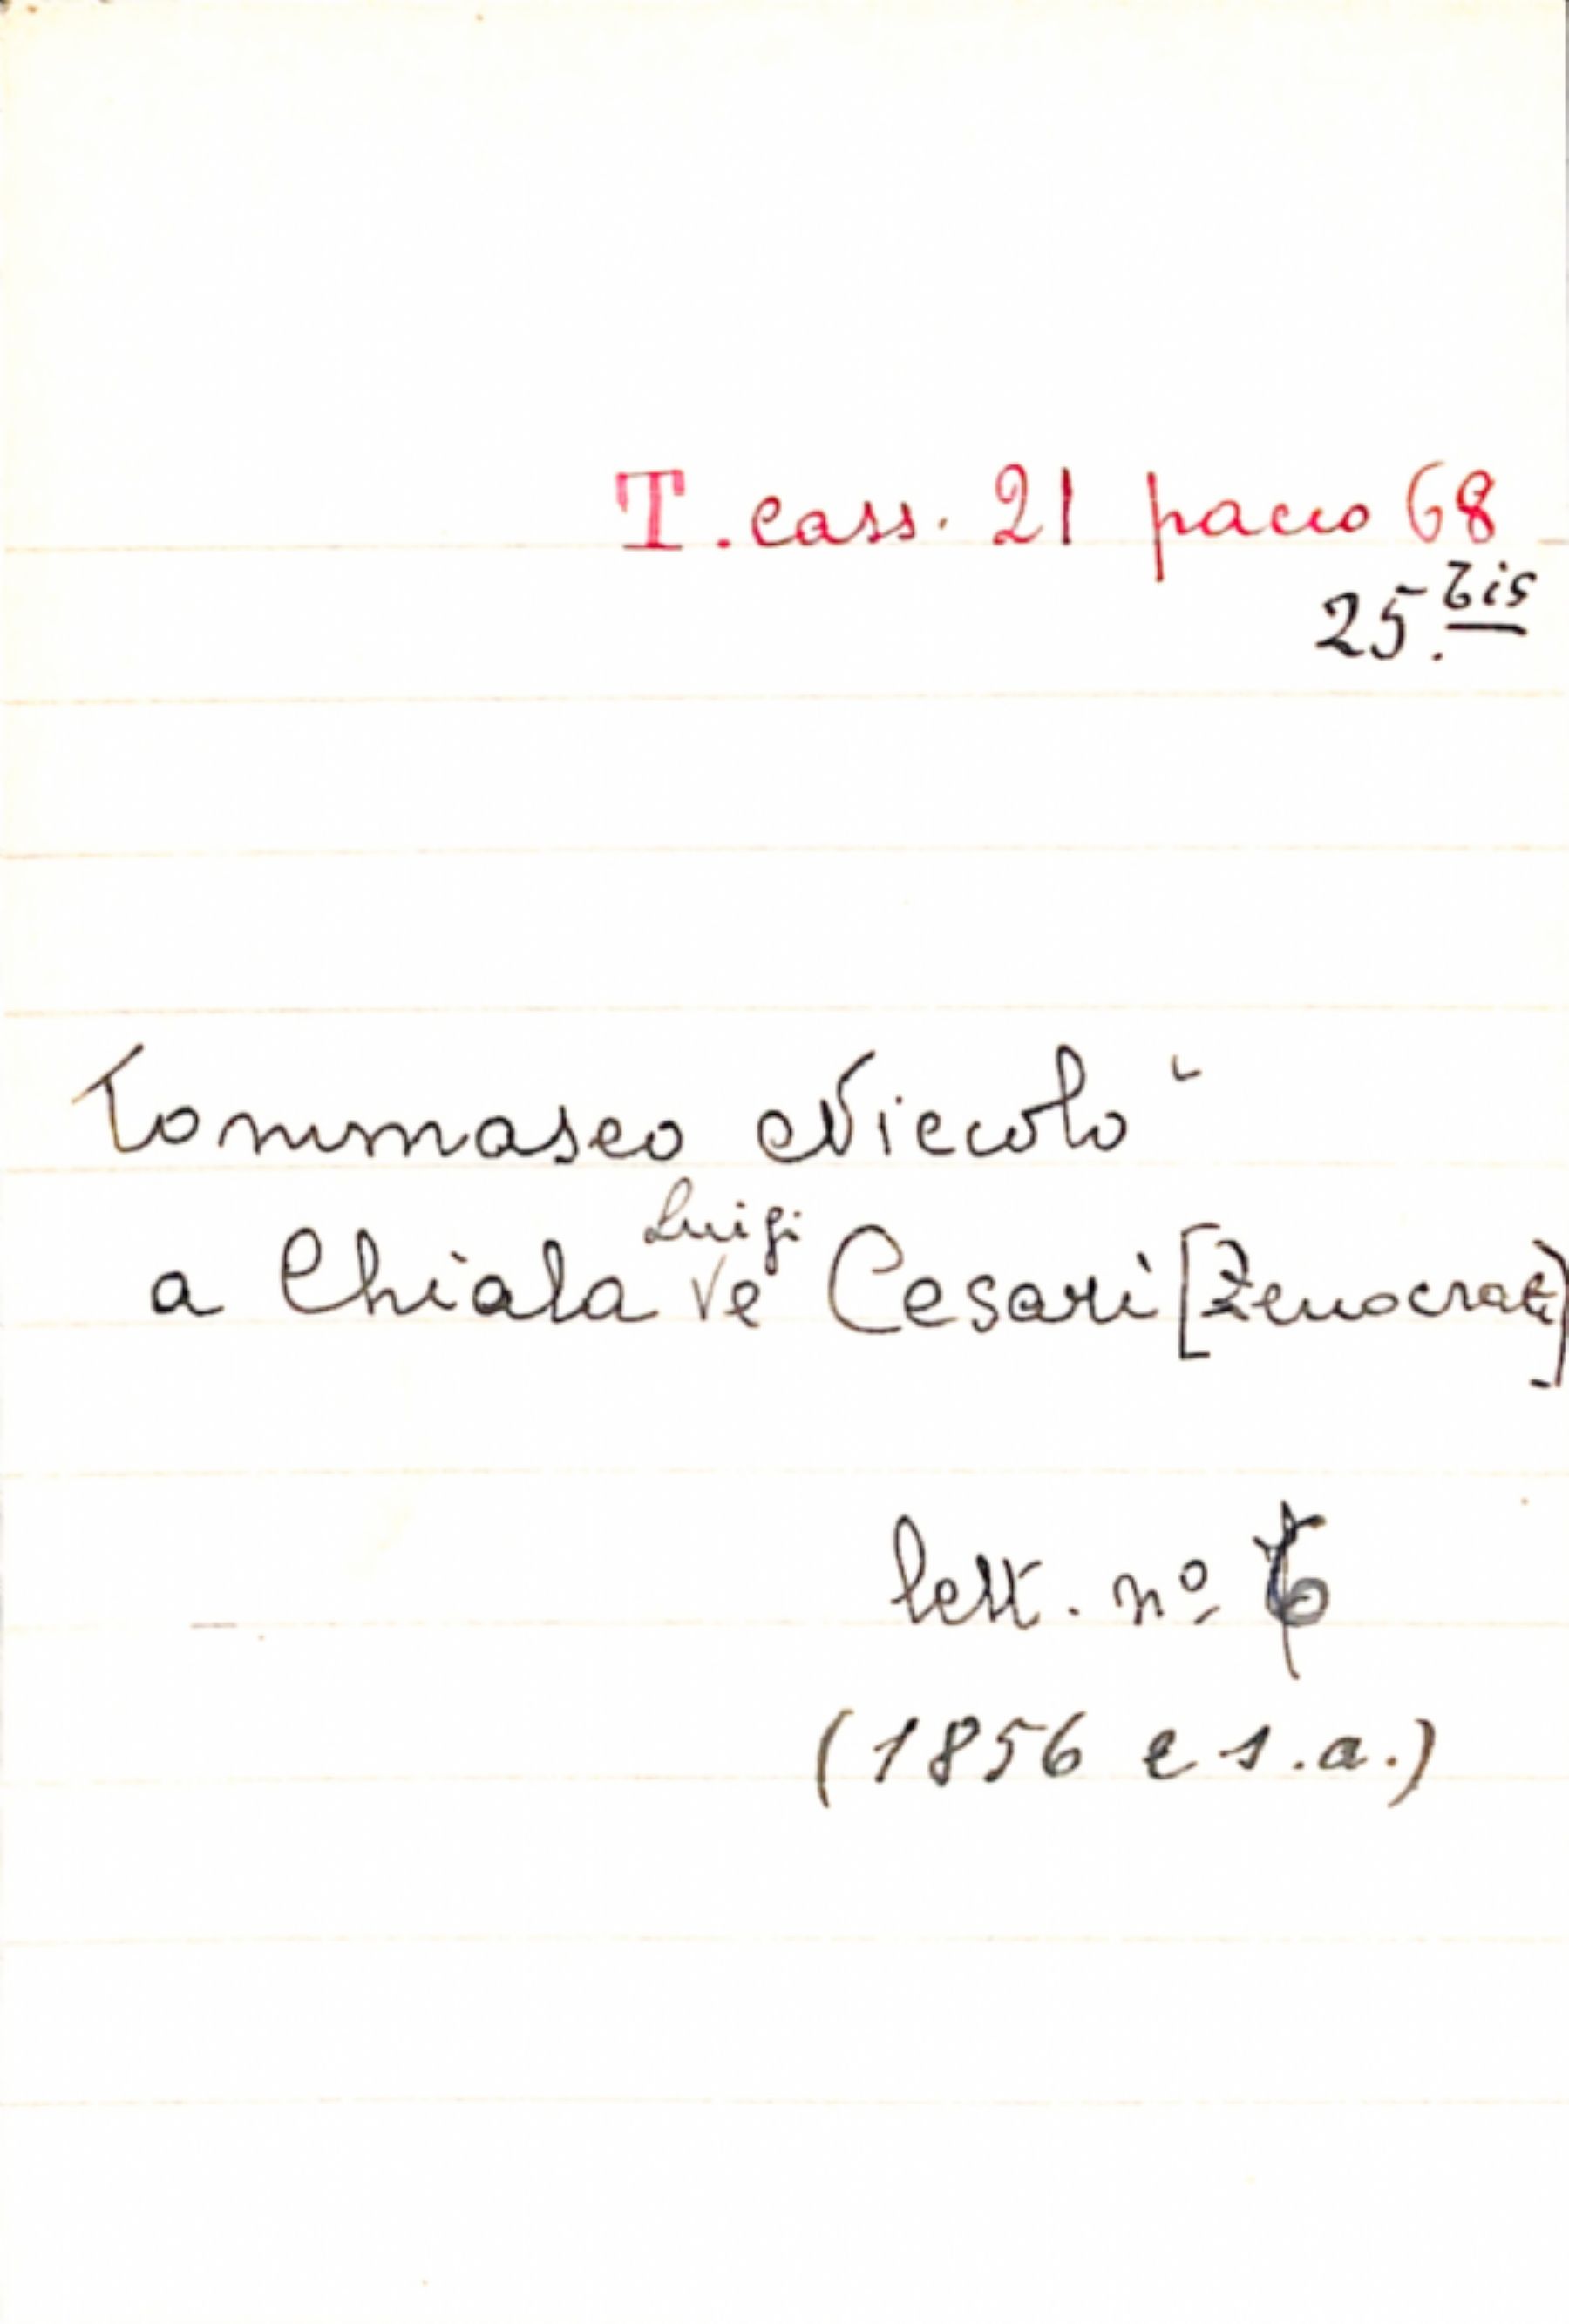 T. cass. 21 pacco 68
25.bis
Tommaseo Niccolò
a Chiala Luigi e Cesari [Zenocrate]
lett. nº 6
(1856 e s.a.)